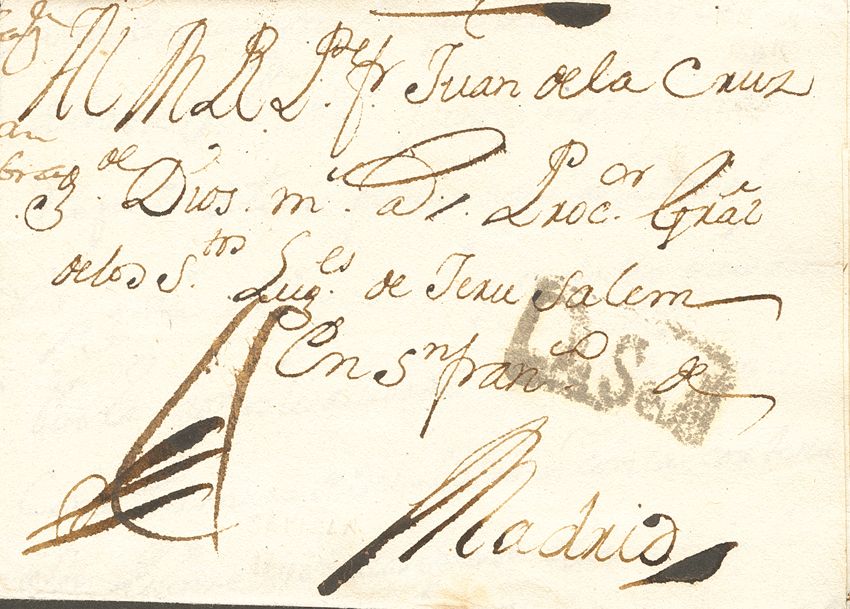 Al M R P.e fr Juan de la Cruz
g.de Dios m.s a.s Proc.or Gral
de los S.tos Lug.es de Jerusalem
En S.n fran.co de
Madrid